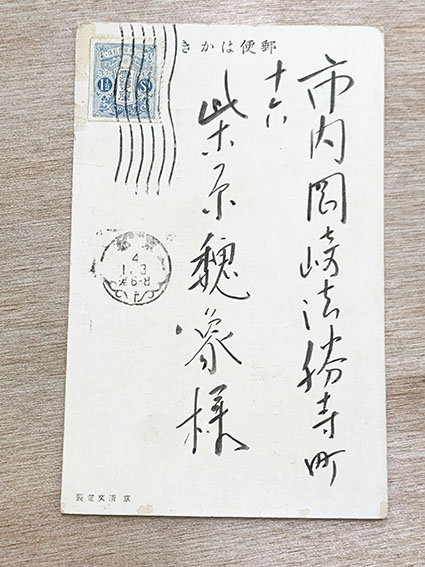 郵便はかき
市内岡崎法勝寺町
十六
柴原魏象様
1½
4
1.3
6-8